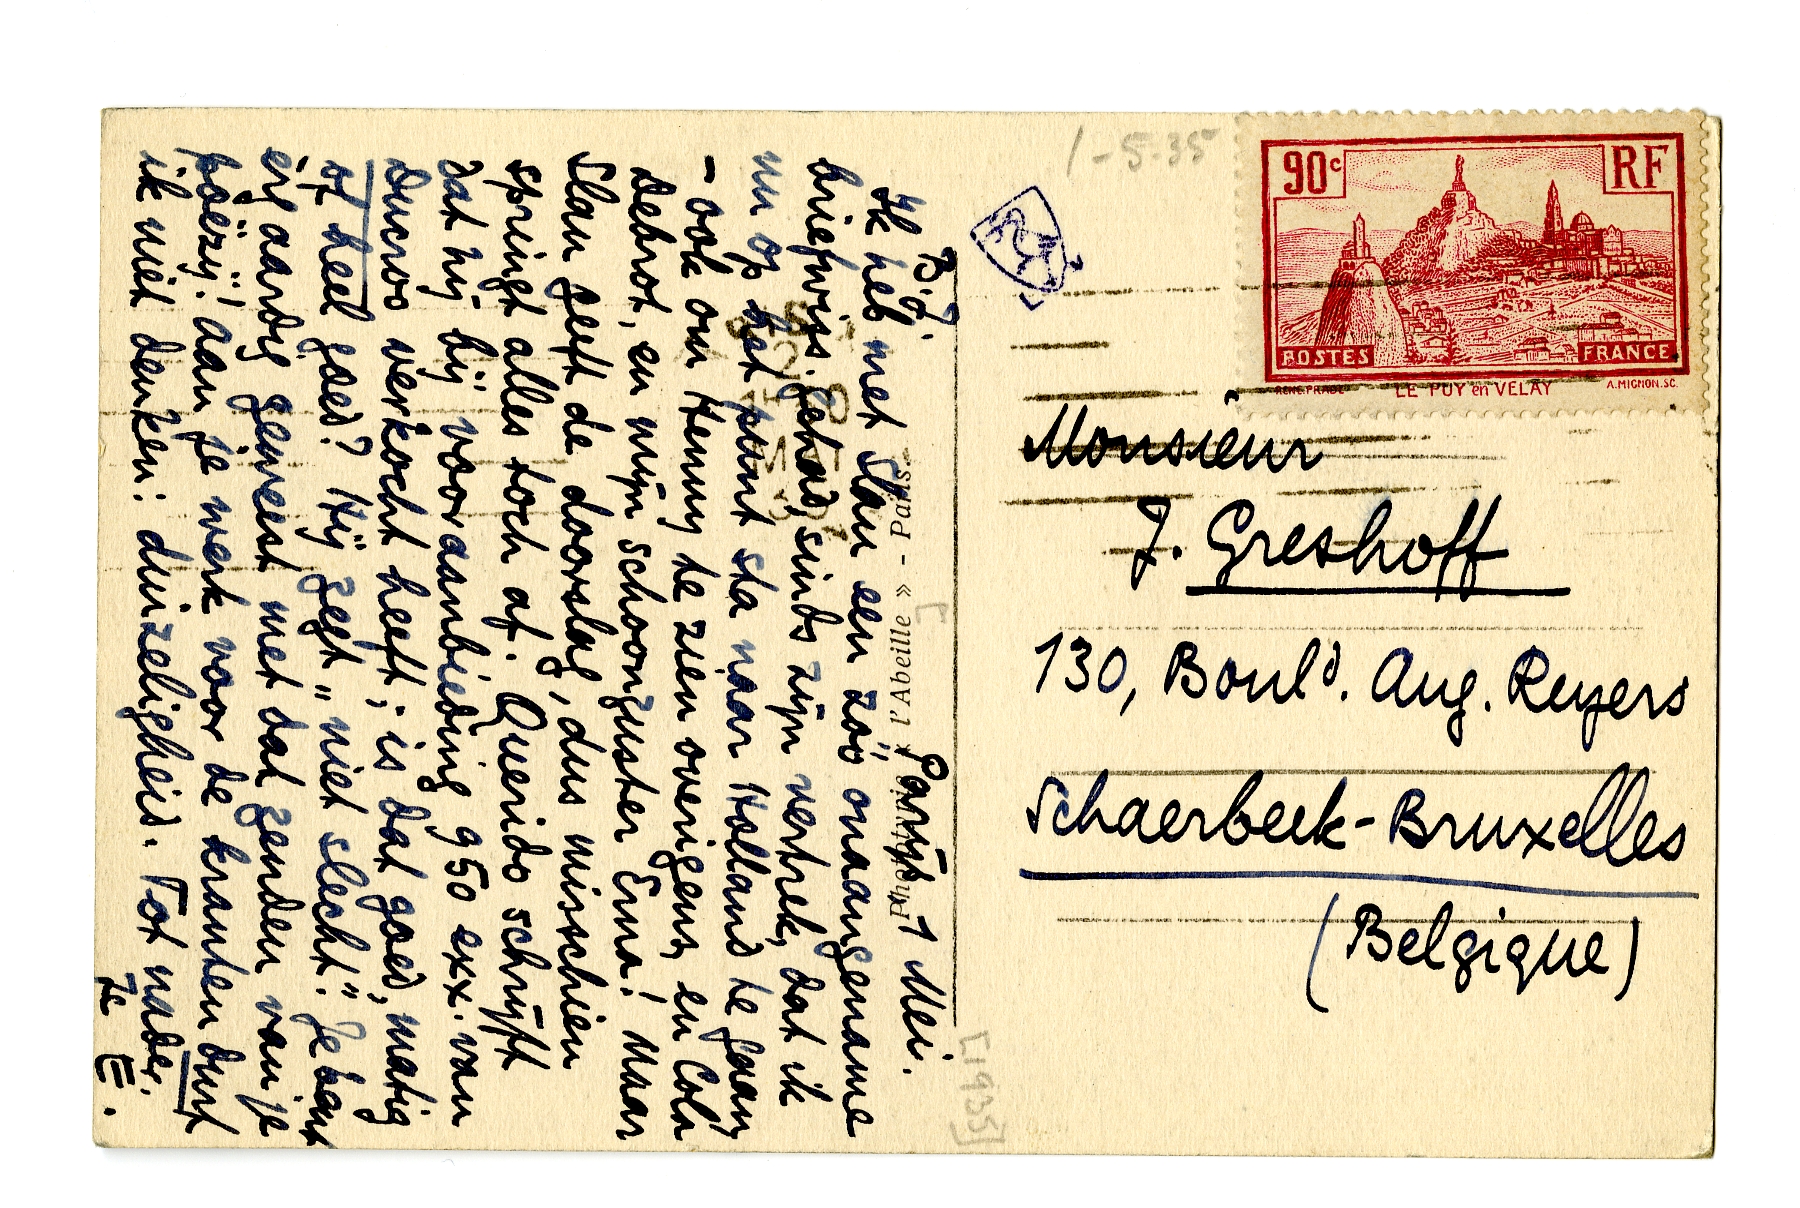 Parijs, 1 Mei.
B.J.
Ik heb met Slau een zoo onaangename
briefwiss. gehad, sinds zijn vertrek, dat ik
nu op het punt sta naar Holland te gaan
- ook om Henny te zien overigens, en Cola
Debrot, en mijn schoonzuster Erna! Maar
Slau geeft de doorslag, dus misschien
springt alles toch af. Querido schrijft
dat hij bij vooraanbieding 950 exx. van
Ducroo verkocht heeft; is dat goed, matig
of heel goed? Hij zegt „niet slecht". Je bent
erg aardig geweest met dat zenden van je
poëzy! Aan je werk voor de kranten durf
ik niet denken: duizeligheid. Tot nader.
Je E.
Phototypie « l'Abeille » - Paris.
[1935]
1-5.35
90c
RF
POSTES
FRANCE
LE PUY en VELAY
A.MIGNON.SC.
Monsieur
J. Greshoff
130, Bould. Aug. Reyers
Schaerbeek-Bruxelles
(Belgique)